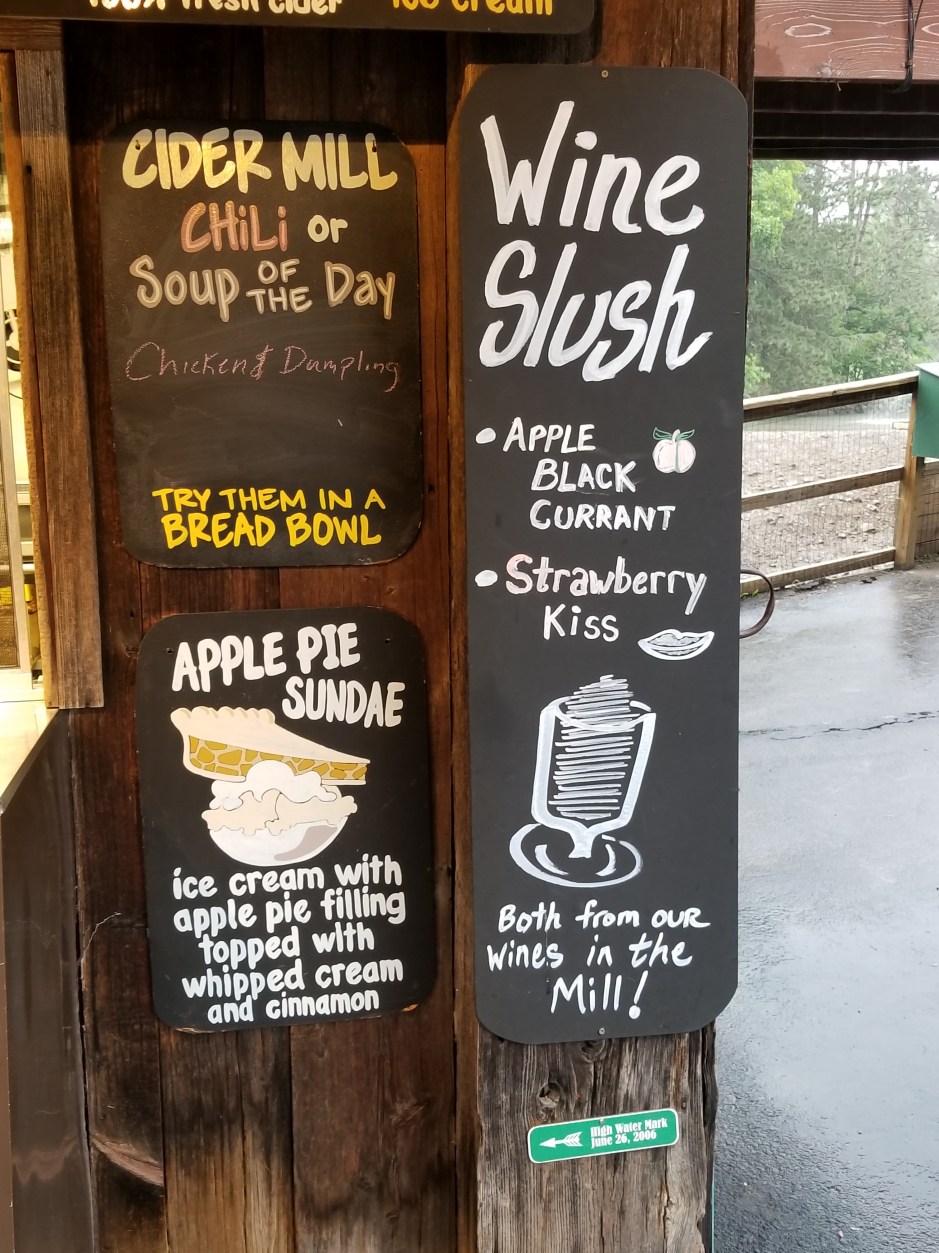 100% fresh cider ice cream
CIDER MILL
CHiLi or
Soup OF THE Day
Chicken & Dumpling
TRY THEM IN A
BREAD BOWL
APPLE PIE
SUNDAE
ice cream with
apple pie filling
topped with
whipped cream
and cinnamon
Wine
Slush
• APPLE
BLACK
CURRANT
• Strawberry
Kiss
Both from our
wines in the
Mill!
High Water Mark
June 26, 2006